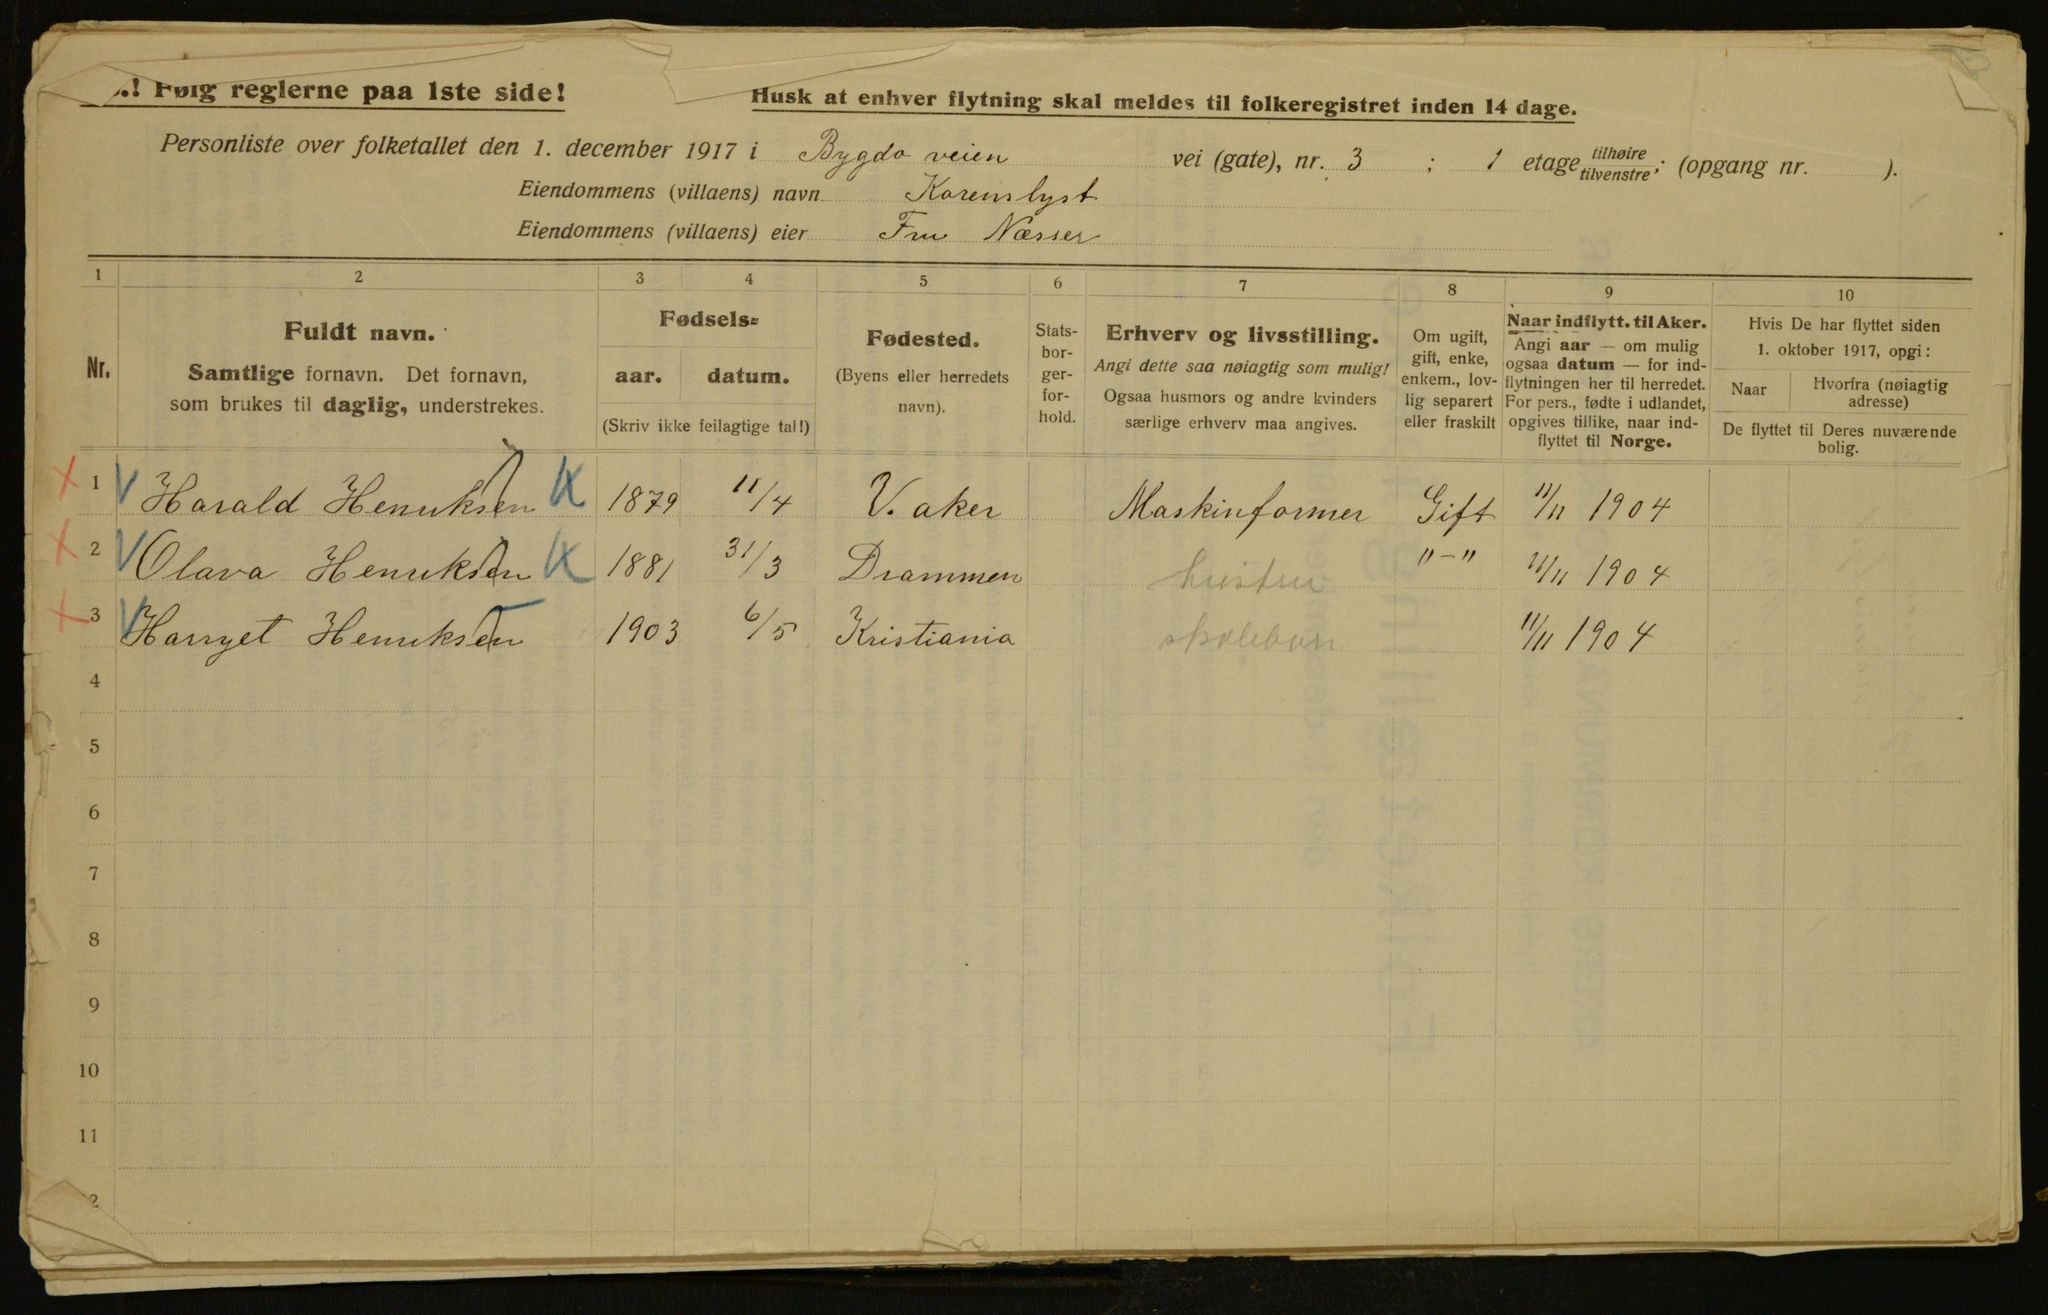 .! Følg reglerne paa 1ste side!
Husk at enhver flytning skal meldes til folkeregistret inden 14 dage.
Personliste over folketallet den 1. december 1917 i Bygdo veien vei (gate), nr. 3 ; 1 etage tilhøire tilvenstre; (opgang nr. ).
Eiendommens (villaens) navn Karenslyst
Eiendommens (villaens) eier Fru Næsser
1 2 3 4 5 6 7 8 9 10
Nr.
Fuldt navn.
Samtlige fornavn. Det fornavn,
som brukes til daglig, understrekes.
Fødsels=
aar. datum.
(Skriv ikke feilagtige tal!)
Fødested.
(Byens eller herredets
navn).
Stats-
bor-
ger-
for-
hold.
Erhverv og livsstilling.
Angi dette saa nøiagtig som mulig!
Ogsaa husmors og andre kvinders
særlige erhverv maa angives.
Om ugift,
gift, enke,
enkem., lov-
lig separert
eller fraskilt
Naar indflytt. til Aker.
Angi aar — om mulig
ogsaa datum — for ind-
flytningen her til herredet.
For pers., fødte i udlandet,
opgives tillike, naar ind-
flyttet til Norge.
Hvis De har flyttet siden
1. oktober 1917, opgi:
Naar Hvorfra (nøiagtig
adresse)
De flyttet til Deres nuværende
bolig.
1 Harald Henriksen 1879 11/4 V. aker Maskinformer Gift 11/11 1904
2 Olava Henriksen 1881 31/3 Drammen hustru "-" 11/11 1904
3 Harryet Henriksen 1903 6/5 Kristiania skolebarn 11/11 1904
4
5
6
7
8
9
10
11
2